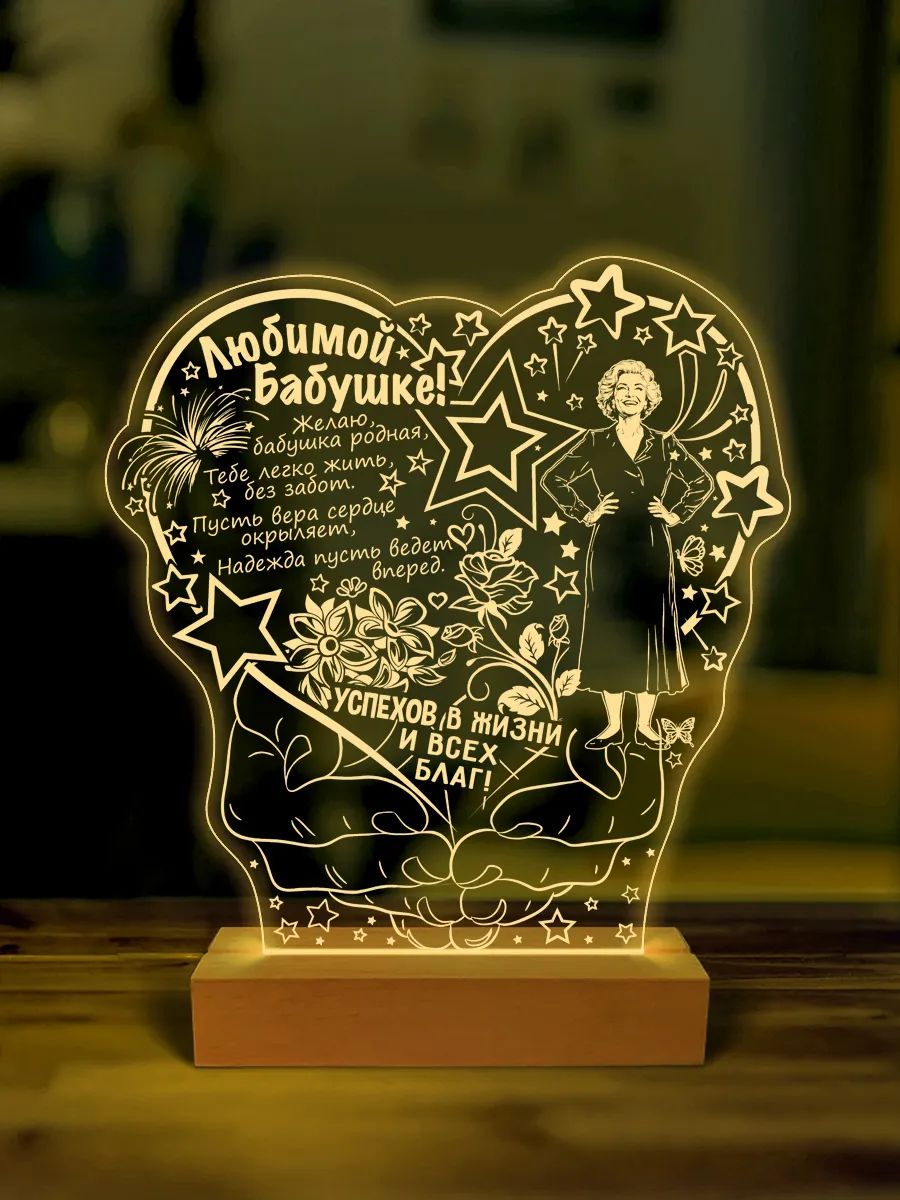 Любимой
Бабушке!
Желаю,
бабушка родная,
Тебе легко жить,
без забот.
Пусть вера сердце
окрыляет,
Надежда пусть ведет
вперед.
УСПЕХОВ В ЖИЗНИ
И ВСЕХ
БЛАГ!